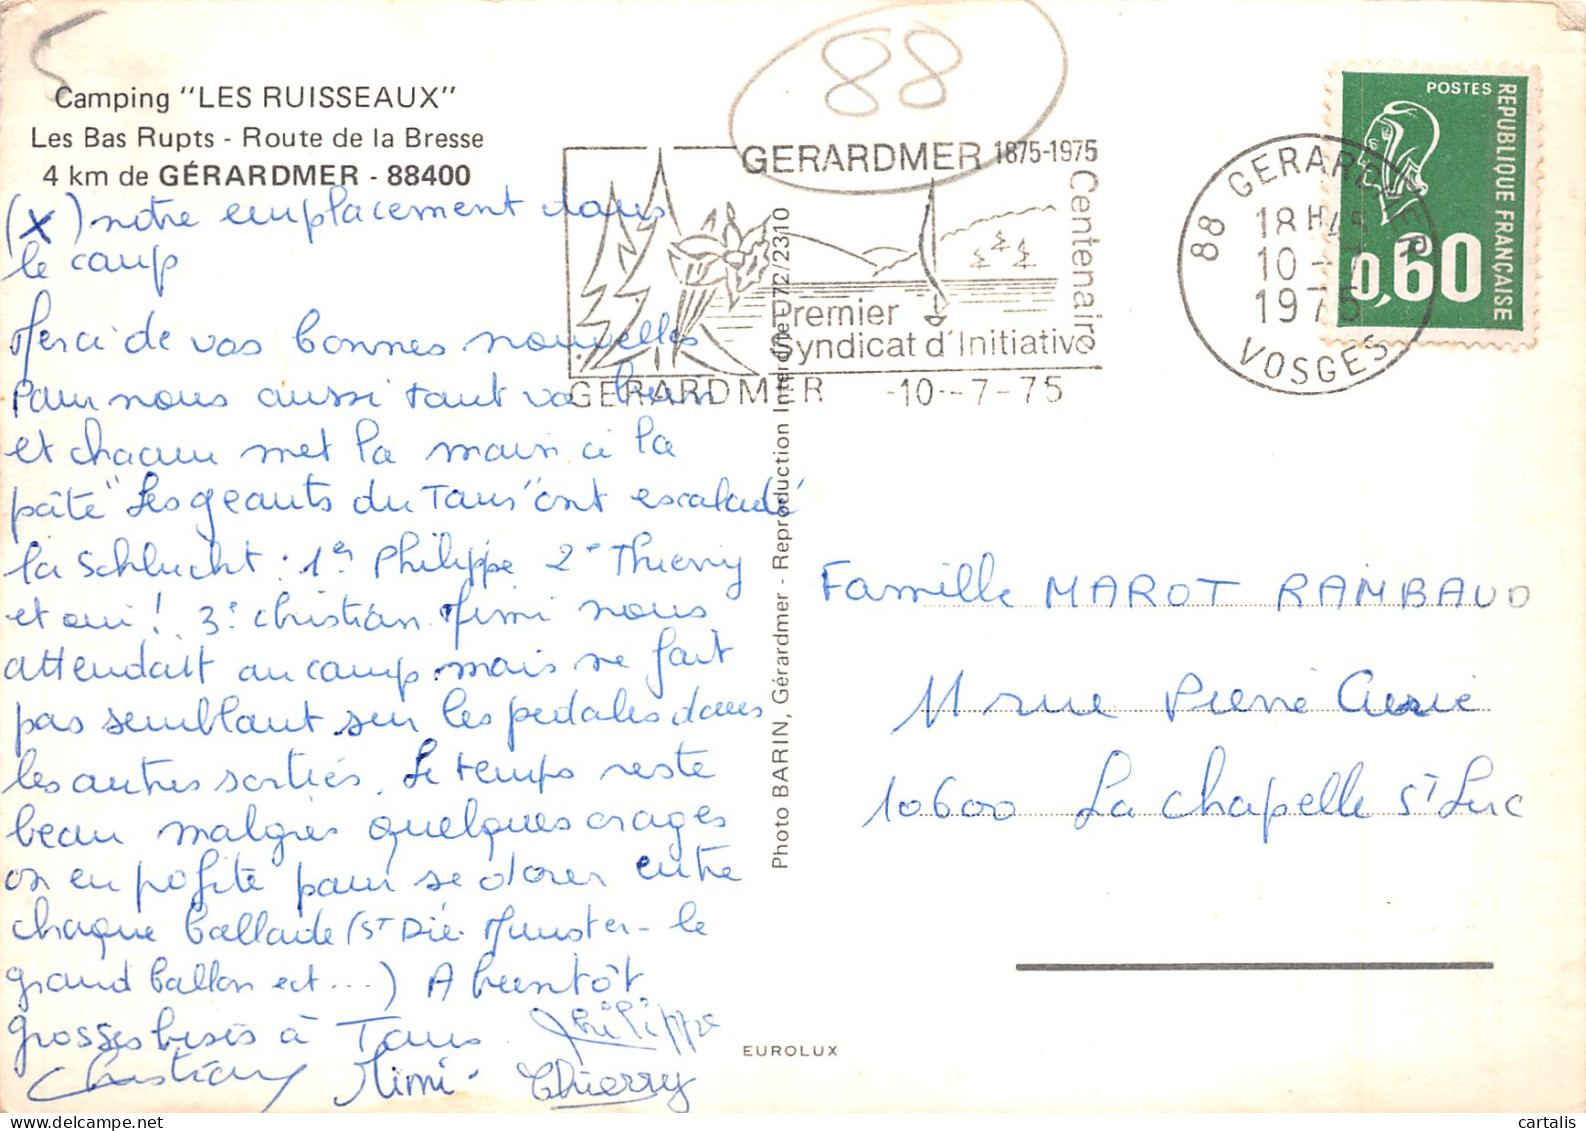 88
Camping "LES RUISSEAUX"
Les Bas Rupts - Route de la Bresse
4 km de GÉRARDMER - 88400
(x) notre emplacement dans
le camp
Merci de vos bonnes nouvelles
Pour nous aussi tout va bien
et chacun met la main à la
pâte "Les géants du Tour" ont escaladé
la Schlucht : 1er Philippe 2e Thierry
et oui ! 3e Christian. Mimi nous
attendait au camp mais ne fait
pas semblant sur les pédales dans
les autres sorties. Le temps reste
beau malgrés quelques orages
on en profite pour se dorer entre
chaque ballade (St Dié - Munster - le
grand ballon ect...) A bientôt
grosses bises à Tous Philippe
Christian Mimi - Thierry
GERARDMER 1875-1975
Centenaire
Premier
Syndicat d'Initiative
GERARDMER -10--7-75
88 GERARDMER
18H45
10-7
1975
VOSGES
POSTES
REPUBLIQUE FRANÇAISE
0,60
Photo BARIN, Gérardmer - Reproduction Interdite - 72/2310
Famille MAROT RAMBAUD
11 rue Pierre Curie
10600 La Chapelle St Luc
EUROLUX
cartalis
delcampe.net